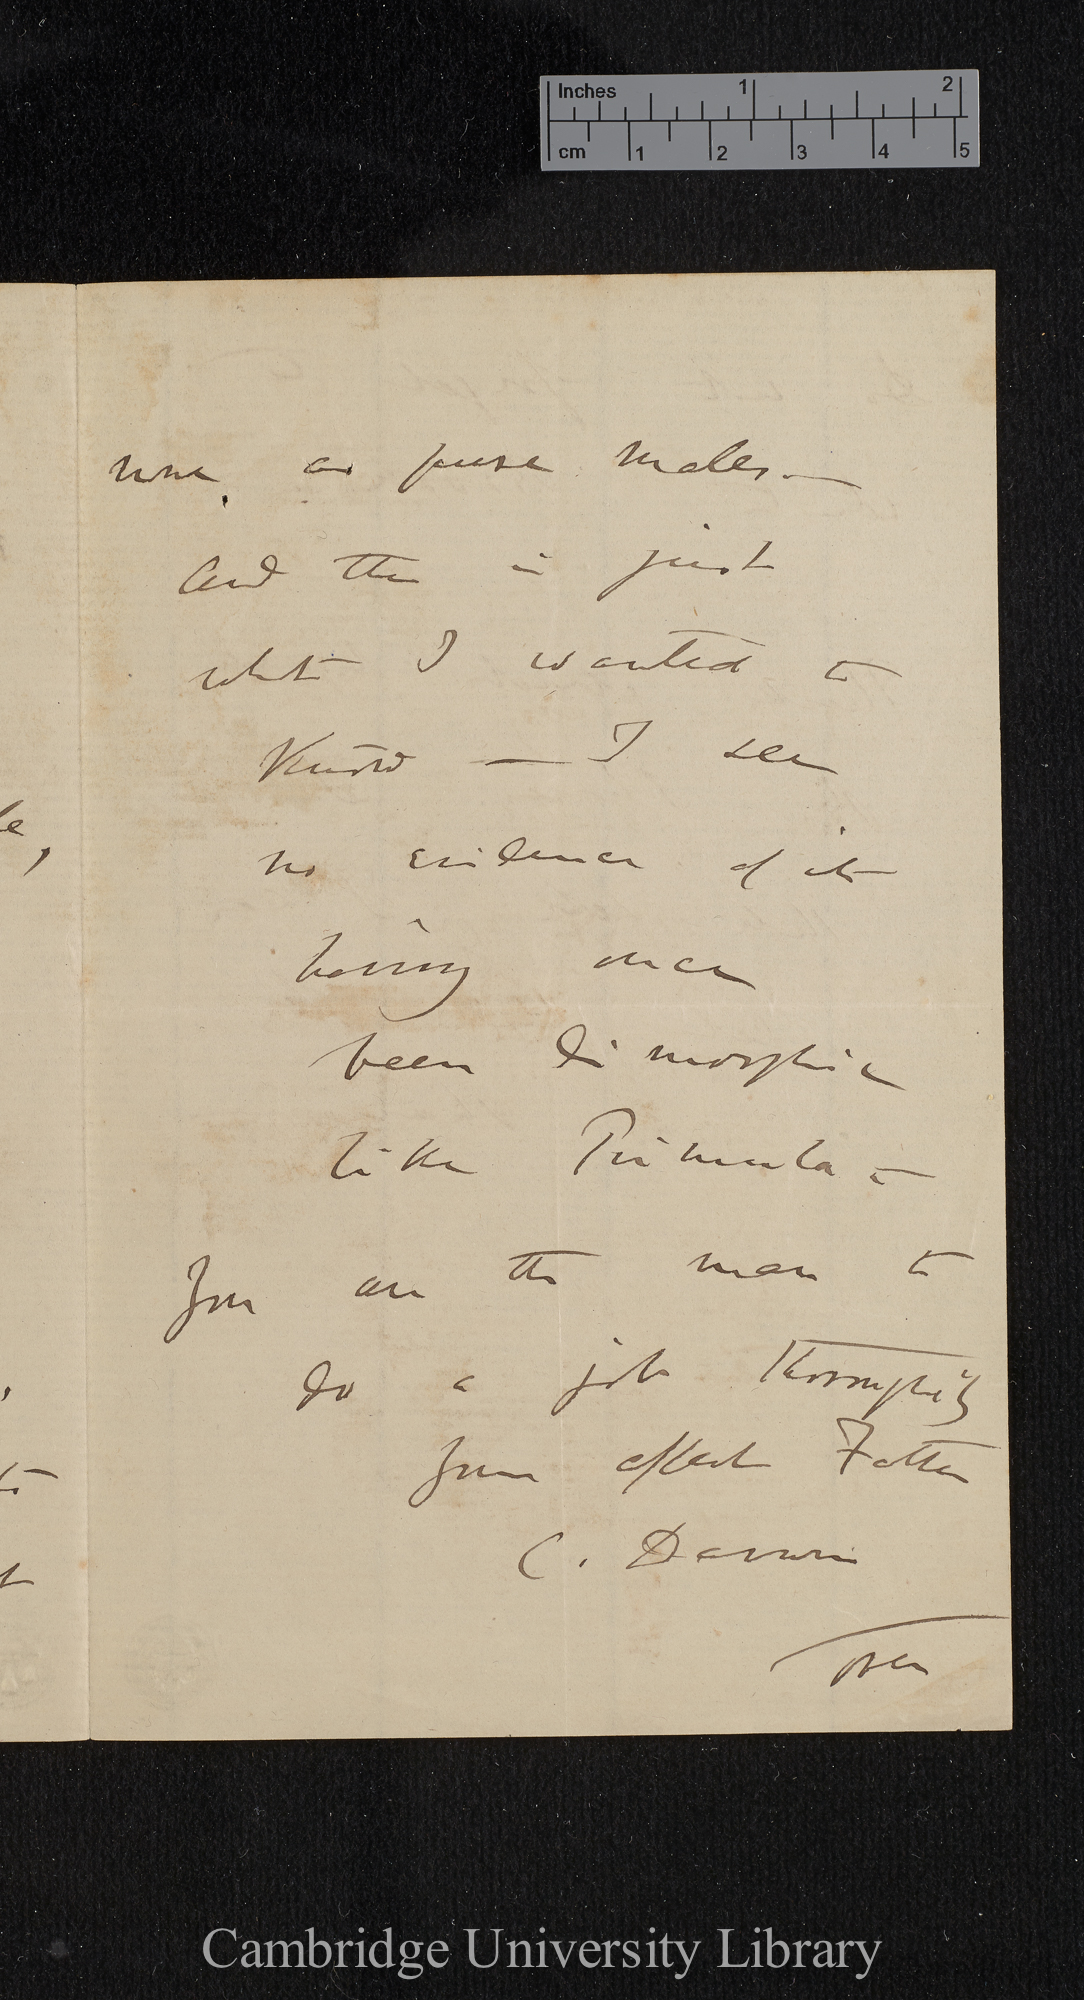 Inches 1 2
cm 1 2 3 4 5
none, as pure males.—
And this is just
what I wanted to
Know — I see
no evidence of its
having once
been dimorphic
like Primula —
You are the man to
do a job thoroughily
Your affect Father
C. Darwin
Over
le,
Cambridge University Library